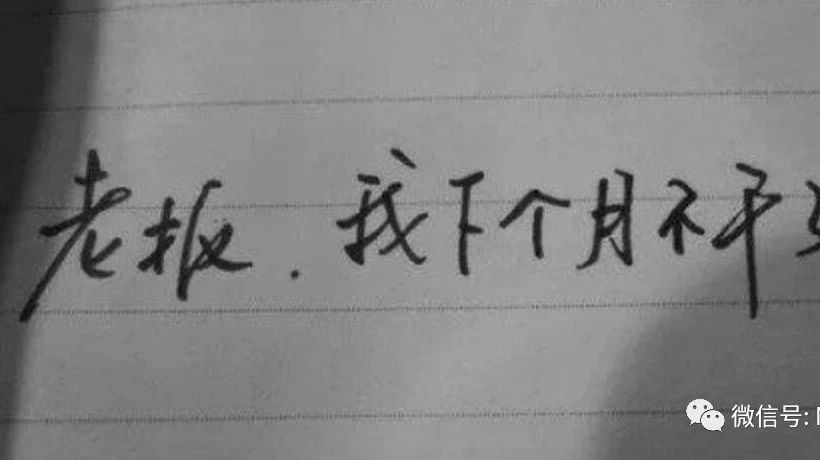 老板.我下个月不干
微信号: